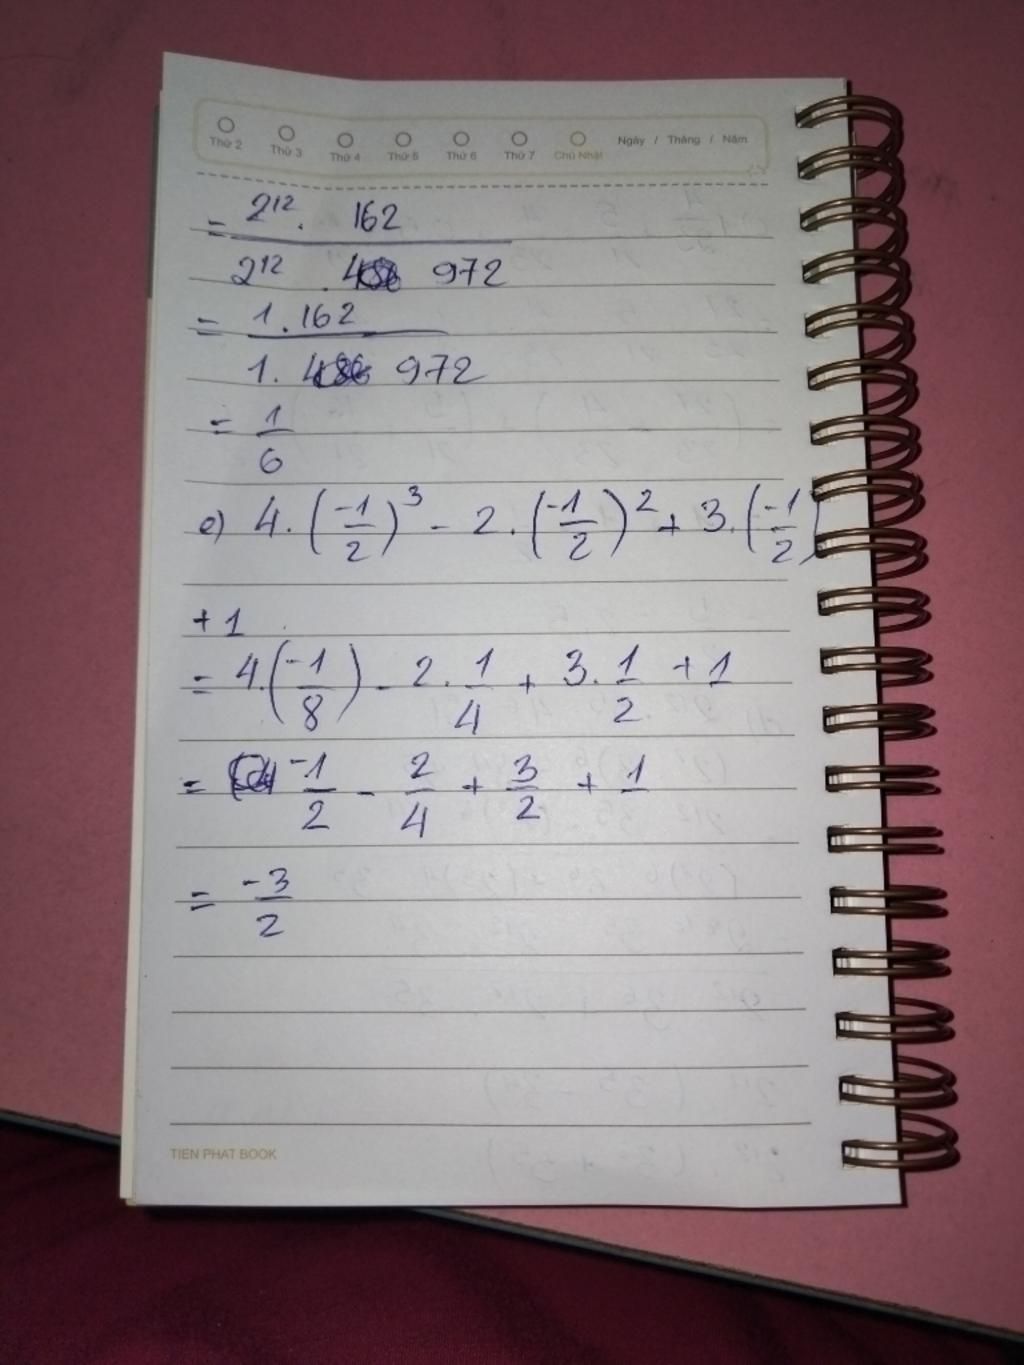 Thứ 2 Thứ 3 Thứ 4 Thứ 5 Thứ 6 Thứ 7 Chủ Nhật Ngày / Tháng / Năm
= \frac{2^{12} . 162}{2^{12} . 972}
= \frac{1.162}{1. 972}
= \frac{1}{6}
e) 4.(\frac{-1}{2})^3 - 2.(\frac{-1}{2})^2 + 3.(\frac{-1}{2})
+ 1
= 4.(\frac{-1}{8}) - 2.\frac{1}{4} + 3.\frac{1}{2} + 1
= \frac{-1}{2} - \frac{2}{4} + \frac{3}{2} + 1
= \frac{-3}{2}
TIEN PHAT BOOK